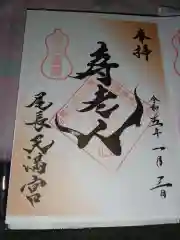 奉拝
寿老人
令和五年一月三日
尾長天満宮